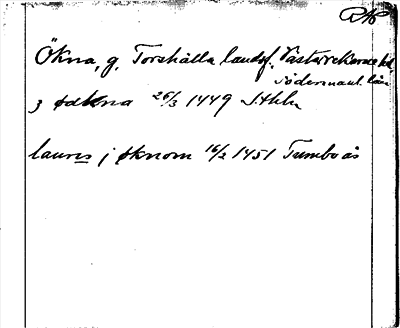 RAP
Ökna, g. Torshälla landsf. Västerrekarne hd.
Södermanl. län
j ødkna 26/3 1449 Sthlm
laurens j øknom 16/2 1451 Tumbo ås